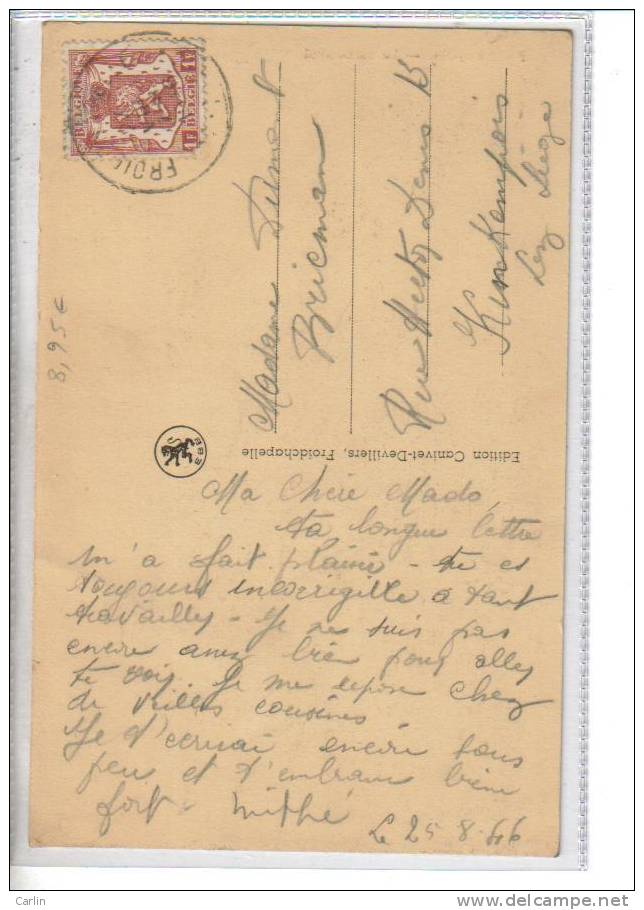 BELGIQUE
BELGIE
1F 1F
FROI
Madame Dumont
Bricman
Rue Hector Denis 15
Kinkempois
Lez Liège
8,95 €
Edition Canivet-Devillers, Froidchapelle
Ma Chère Mado,
ta longue lettre
m'a fait plaisir - tu es
toujours incorrigille à tant
travailler - Je ne suis pas
encore assez bien pour aller
te voir. Je me repose chez
de vieilles cousines.
Je t'ecrirai encore sous
peu et t'embrasse bien
fort.
Le 25-8-46
Carlin
delcampe.net